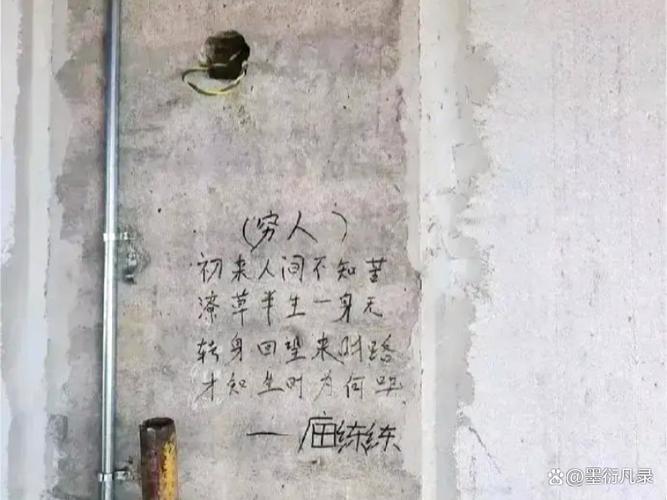 （穷人）
初来人间不知苦
潦草半生一身无
转身回望来时路
才知生时为何哭
一庙练练
墨衍凡录